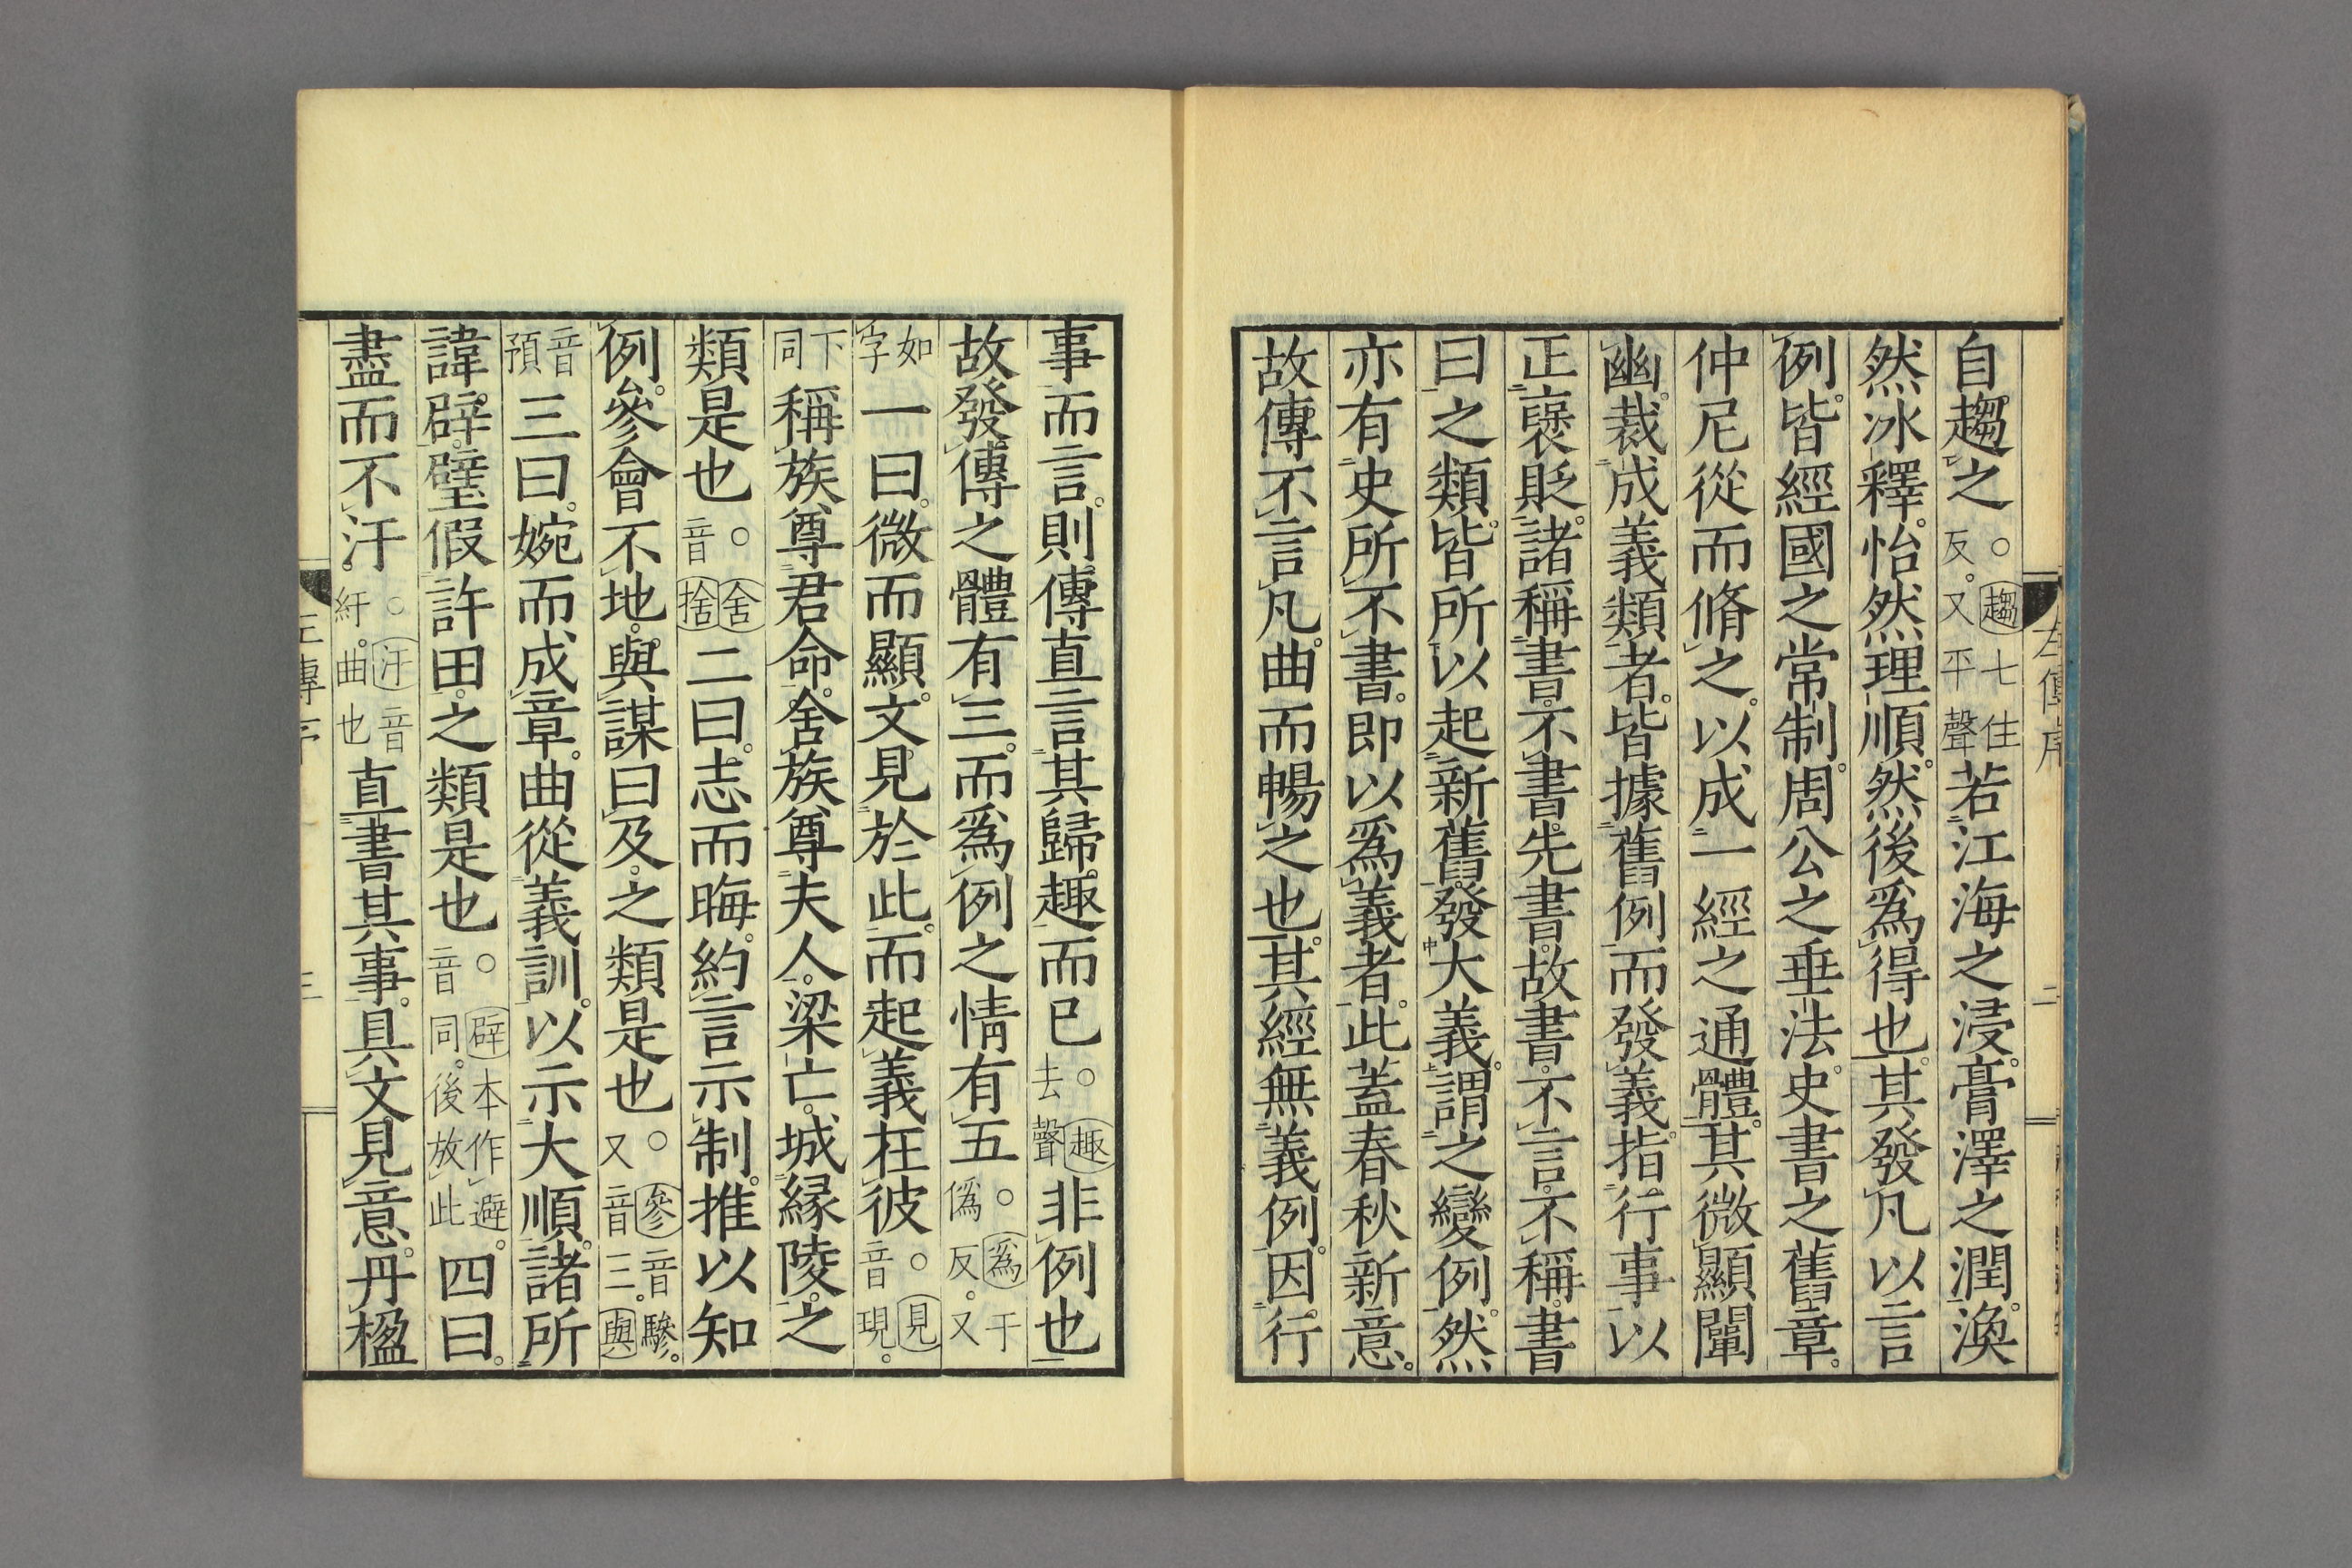 自趨之。趨七住反。又平聲若江海之浸。膏澤之潤。渙
然冰釋。怡然理順。然後爲得也。其發凡以言
例。皆經國之常制。周公之垂法。史書之舊章。
仲尼從而脩之。以成一經之通體。其微顯闡
幽。裁成義類者。皆據舊例而發義。指行事以
正褒貶。諸稱書。不書。先書。故書。不言。不稱。書
曰之類。皆所以起新舊。發大義。謂之變例。然
亦有史所不書。即以爲義者。此蓋春秋新意。
故傳不言凡。曲而暢之也。其經無義例。因行
左傳序 二
事而言。則傳直言其歸趣而已。趣去聲非例也
故發傳之體有三。而爲例之情有五。爲于僞反。又
如字一曰。微而顯。文見於此。而起義在彼。見音現。
下同稱族尊君命。舍族尊夫人。梁亡。城緣陵。之
類是也。舍音捨二曰。志而晦。約言示制。推以知
例。參會不地。與謀曰及。之類是也。參音驂。又音三。與
音預三曰。婉而成章。曲從義訓。以示大順。諸所
諱辟。璧假許田。之類是也。辟本作避。音同。後放此四曰。
盡而不汙。汙音紆。曲也直書其事。具文見意。丹楹